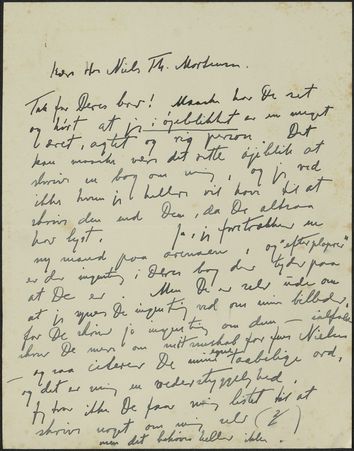 Kære Hr Niels Th. Mortensen.
Tak for Deres brev! Maaske har De set
og hørt at jeg i øjeblikket er en meget
æret, agtet og rig person. Det
kan maaske være det rette øjeblik at
skrive en bog om mig, og jeg ved
ikke hvem jeg hellere vil have til at
skrive den end Dem, da De altsaa
har lyst. Ja, jeg foretrækker en
ny mand paa arenaen og "efterplaprer"
er der ingenting i Deres bog der tyder paa
at De er. Men De er selv ude om
at jeg synes De ingenting ved om mine billeder,
for De skriver jo ingenting om dem - ialfald
skriver De mere om mit venskab for Nielsen
- og saa citerer De mine taabelige ord,
og det er mig en vederstyggelighed.
Jeg tror ikke De faar mig listet til at
skrive noget om mig selv
men det behøves heller ikke.